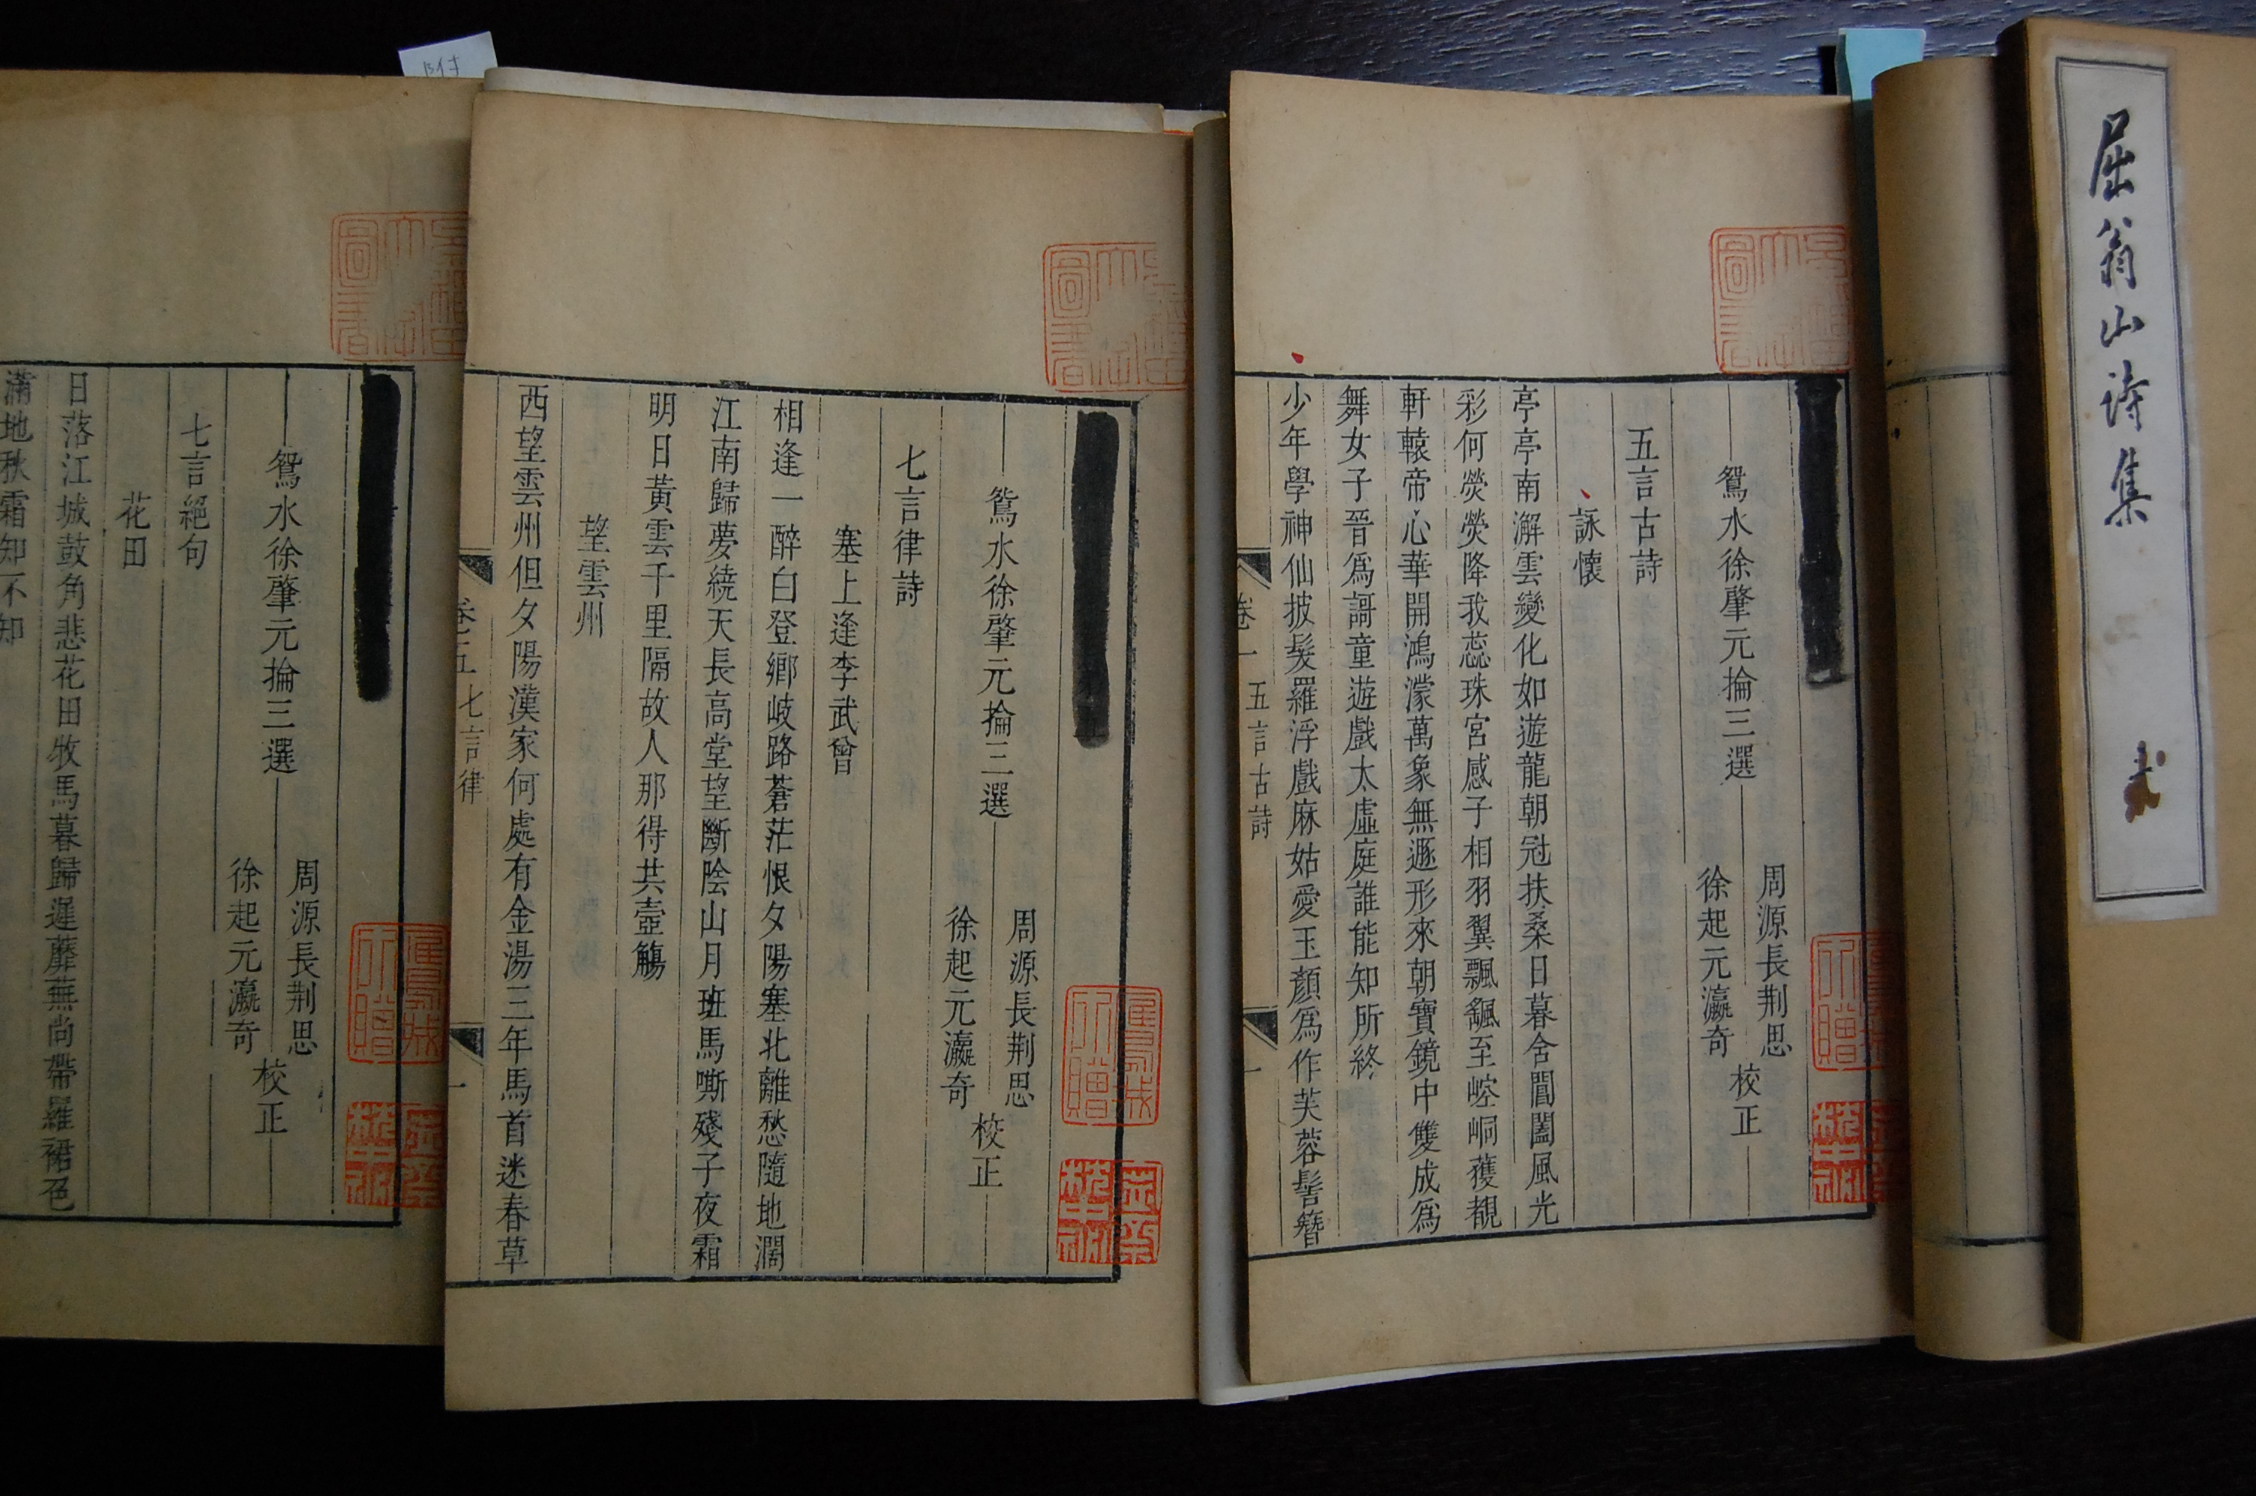 屈翁山詩集
鴛水徐肇元掄三選
周源長荆思
徐起元瀛奇
校正
五言古詩
詠懷
亭亭南澥雲變化如遊龍朝冠扶桑日暮舍閶闔風光
彩何熒熒降我蕊珠宮感子相羽翼飄颻至崆峒獲覩
軒轅帝心華開鴻濛萬象無遯形來朝寶鏡中雙成爲
舞女子晉爲謌童遊戲太虛庭誰能知所終
少年學神仙披髮羅浮戲麻姑愛玉顏爲作芙蓉髻簪
卷一
五言古詩
一
鴛水徐肇元掄三選
周源長荆思
徐起元瀛奇
校正
七言律詩
塞上逢李武曾
相逢一醉白登鄉岐路蒼茫恨夕陽塞北離愁隨地濶
江南歸夢繞天長高堂望斷陰山月班馬嘶殘子夜霜
明日黃雲千里隔故人那得共壺觴
望雲州
西望雲州但夕陽漢家何處有金湯三年馬首迷春草
卷五
七言律
一
鴛水徐肇元掄三選
周源長荆思
徐起元瀛奇
校正
七言絕句
花田
日落江城鼓角悲花田牧馬暮歸遲蘼蕪尚帶羅裙色
滿地秋霜知不知